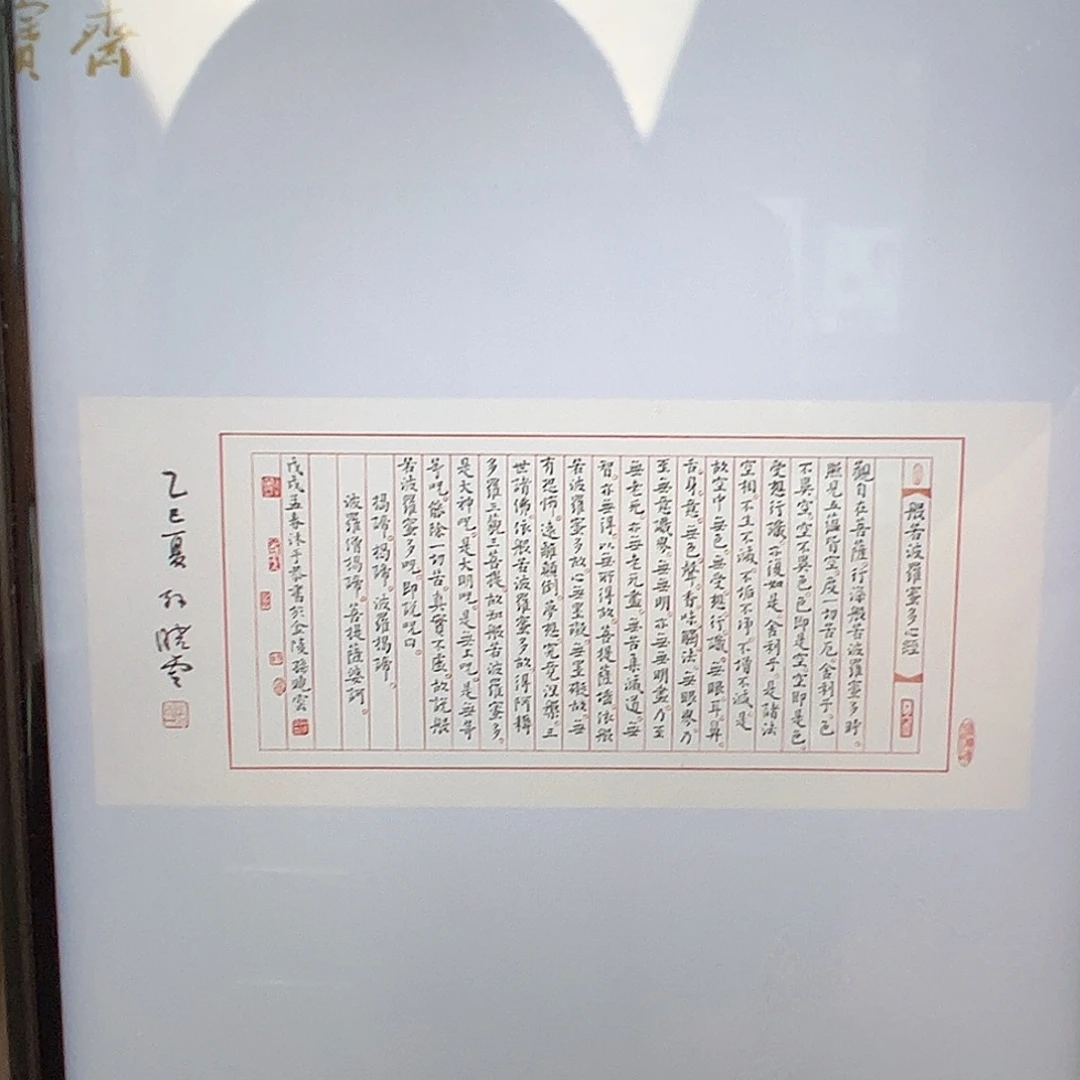 寶齋
般若波羅蜜多心經
觀自在菩薩。行深般若波羅蜜多時。
照見五蘊皆空。度一切苦厄。舍利子。色
不異空。空不異色。色即是空。空即是色。
受想行識。亦復如是。舍利子。是諸法
空相。不生不滅。不垢不淨。不增不減。是
故空中無色。無受想行識。無眼耳鼻
舌身意。無色聲香味觸法。無眼界。乃
至無意識界。無無明。亦無無明盡。乃至
無老死。亦無老死盡。無苦集滅道。無
智。亦無得。以無所得故。菩提薩埵。依般
若波羅蜜多故。心無罣礙。無罣礙故。無
有恐怖。遠離顛倒。夢想。究竟涅槃。三
世諸佛。依般若波羅蜜多故。得阿耨
多羅三藐三菩提。故知般若波羅蜜多。
是大神咒。是大明咒。是無上咒。是無等
等咒。能除一切苦。真實不虛。故說般
若波羅蜜多咒。即說咒曰。
揭諦。揭諦。波羅揭諦。
波羅僧揭諦。菩提薩婆訶。
戊戌孟春沐手恭書於金陵孫曉雲
乙巳夏孫曉雲